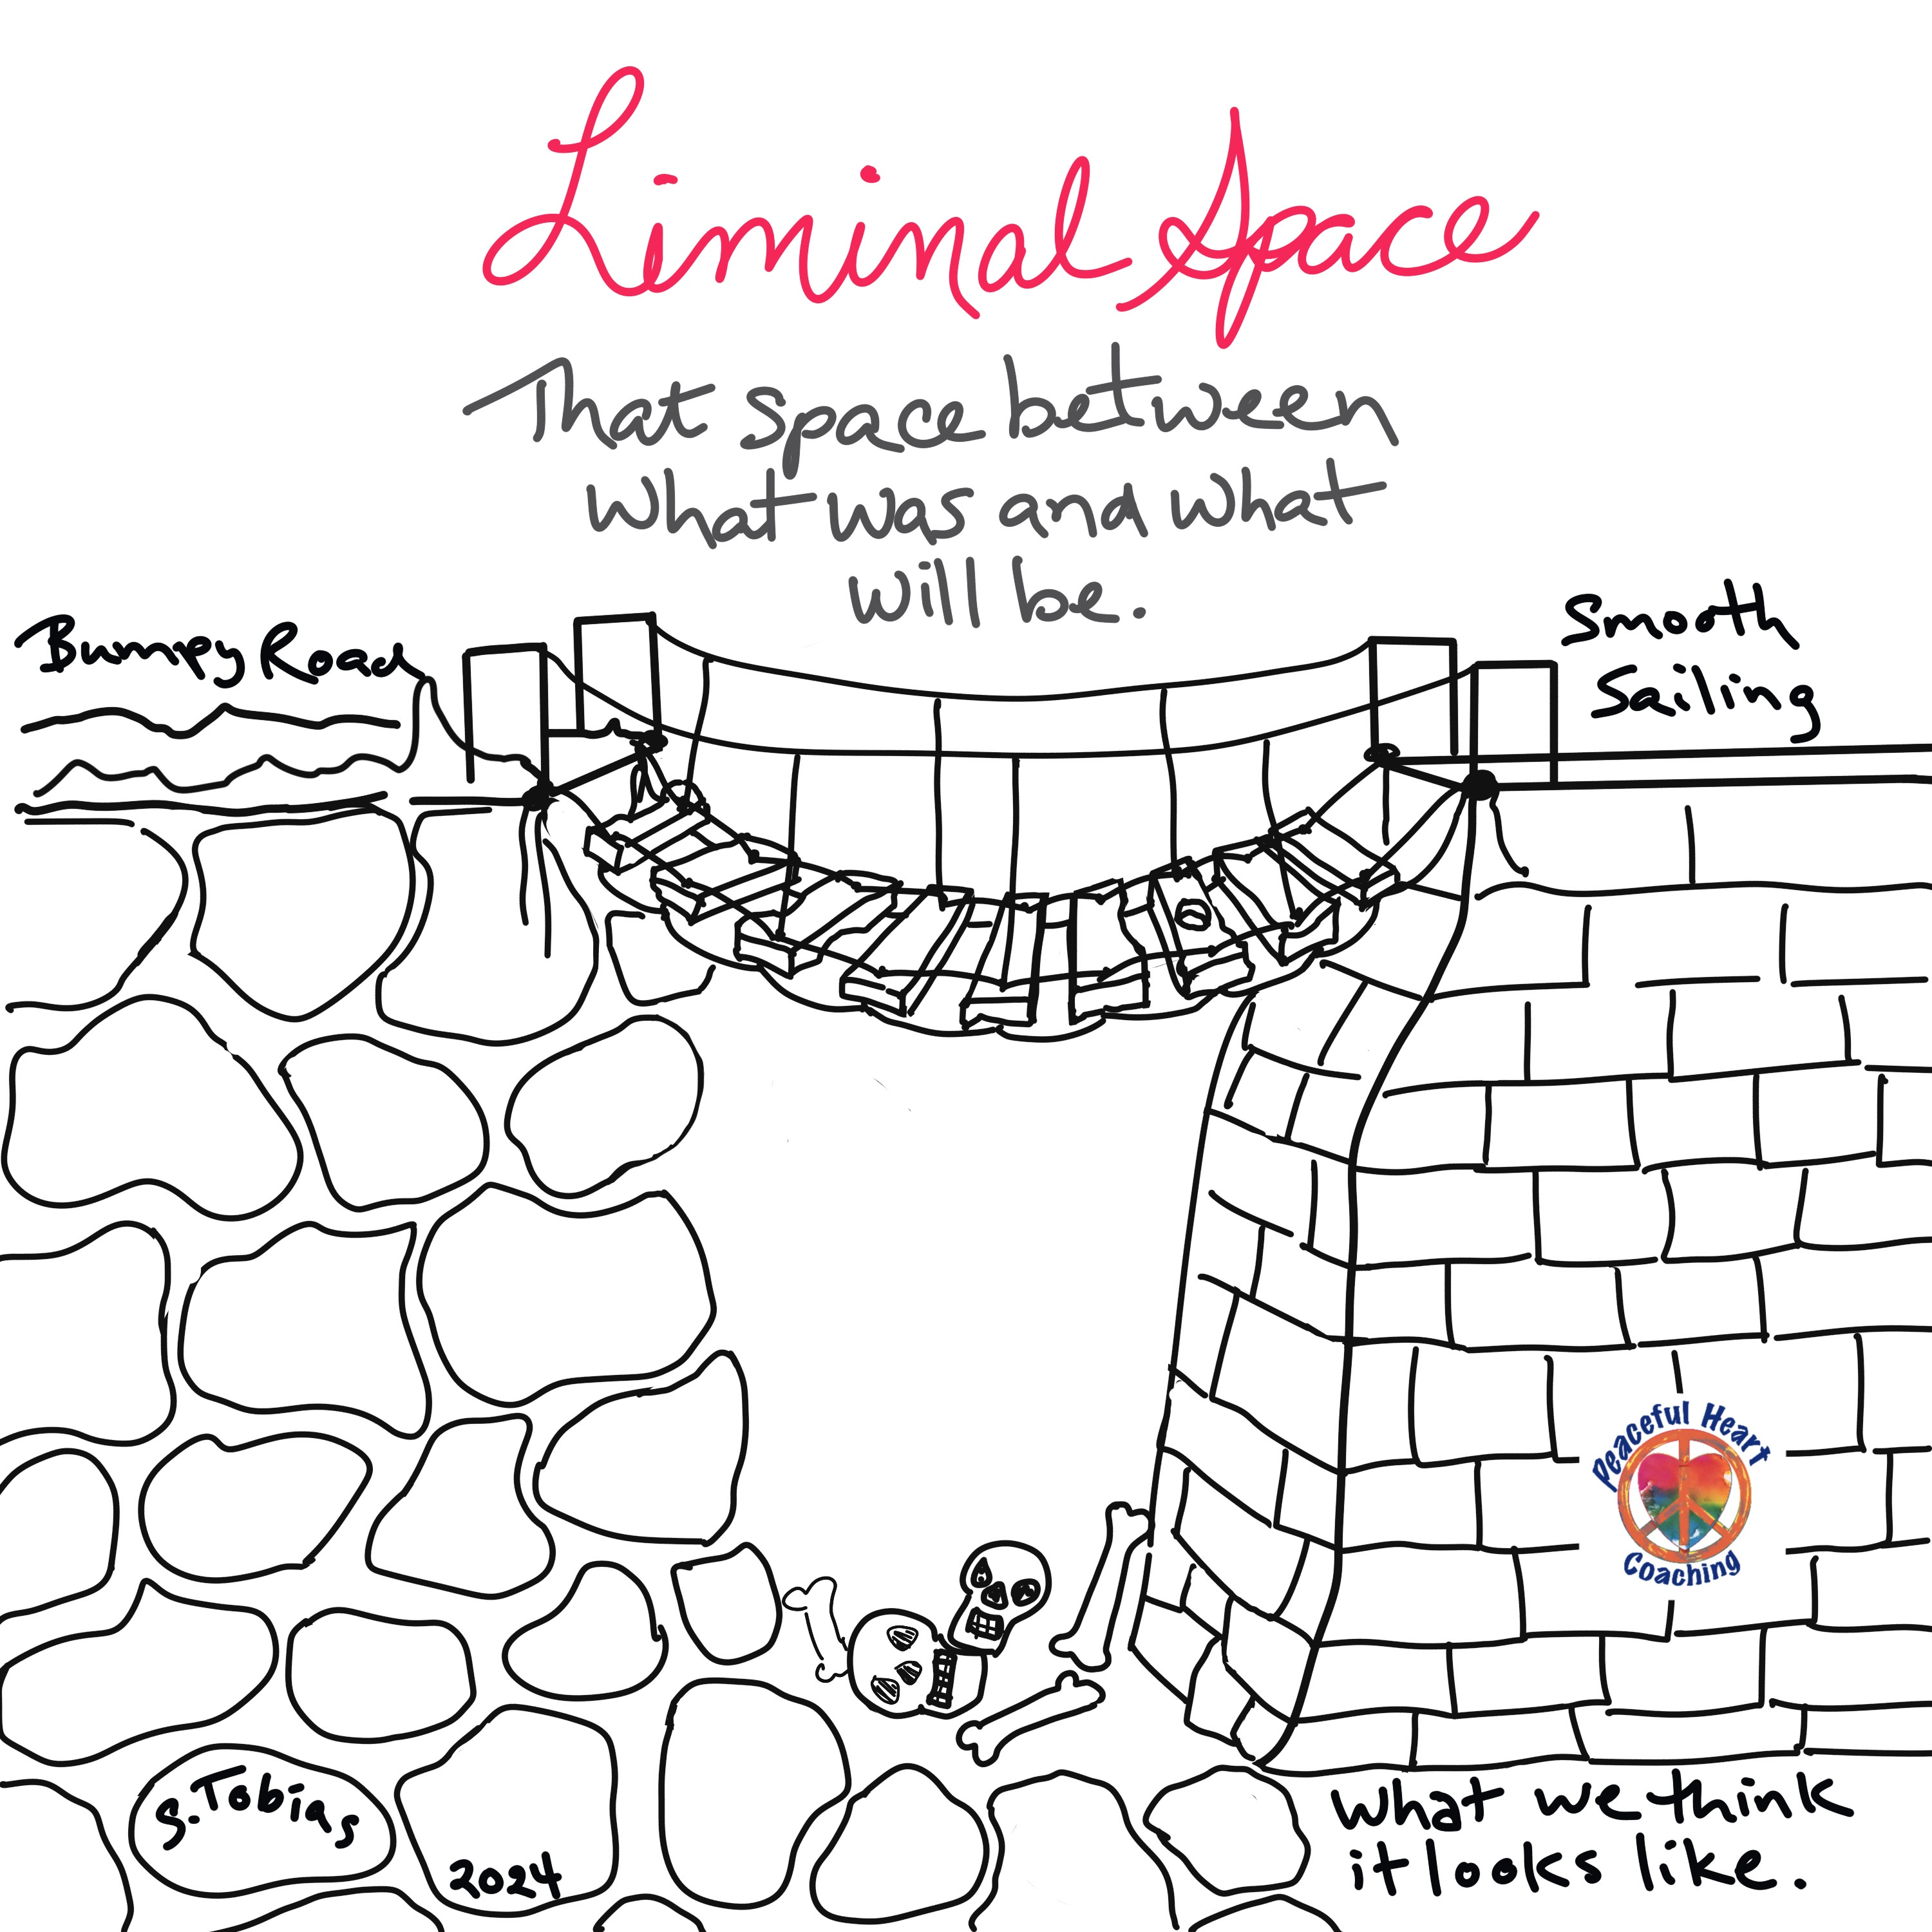 Liminal Space
That space between
what was and what
will be.
Bumpy Road
Smooth
Sailing
Peaceful Heart
Coaching
S. Tobias
2024
what we think
it looks like.